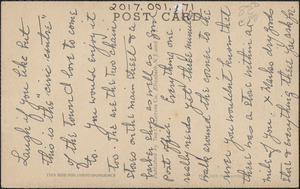 2017.051.171
POST CARD
Laugh if you like but
"this is the civic centre"
of the town I love to come
to. You would enjoy it
too. are the two chain
stores on the main street & a
barber shop as well as a good
Post office. Everything one
really needs yet three minutes
walk around the corner to the
you wouldn't know that
there was a store within a
mile of you. X Marks dry goods
Store & everything there
THIS SIDE FOR CORRESPONDENCE